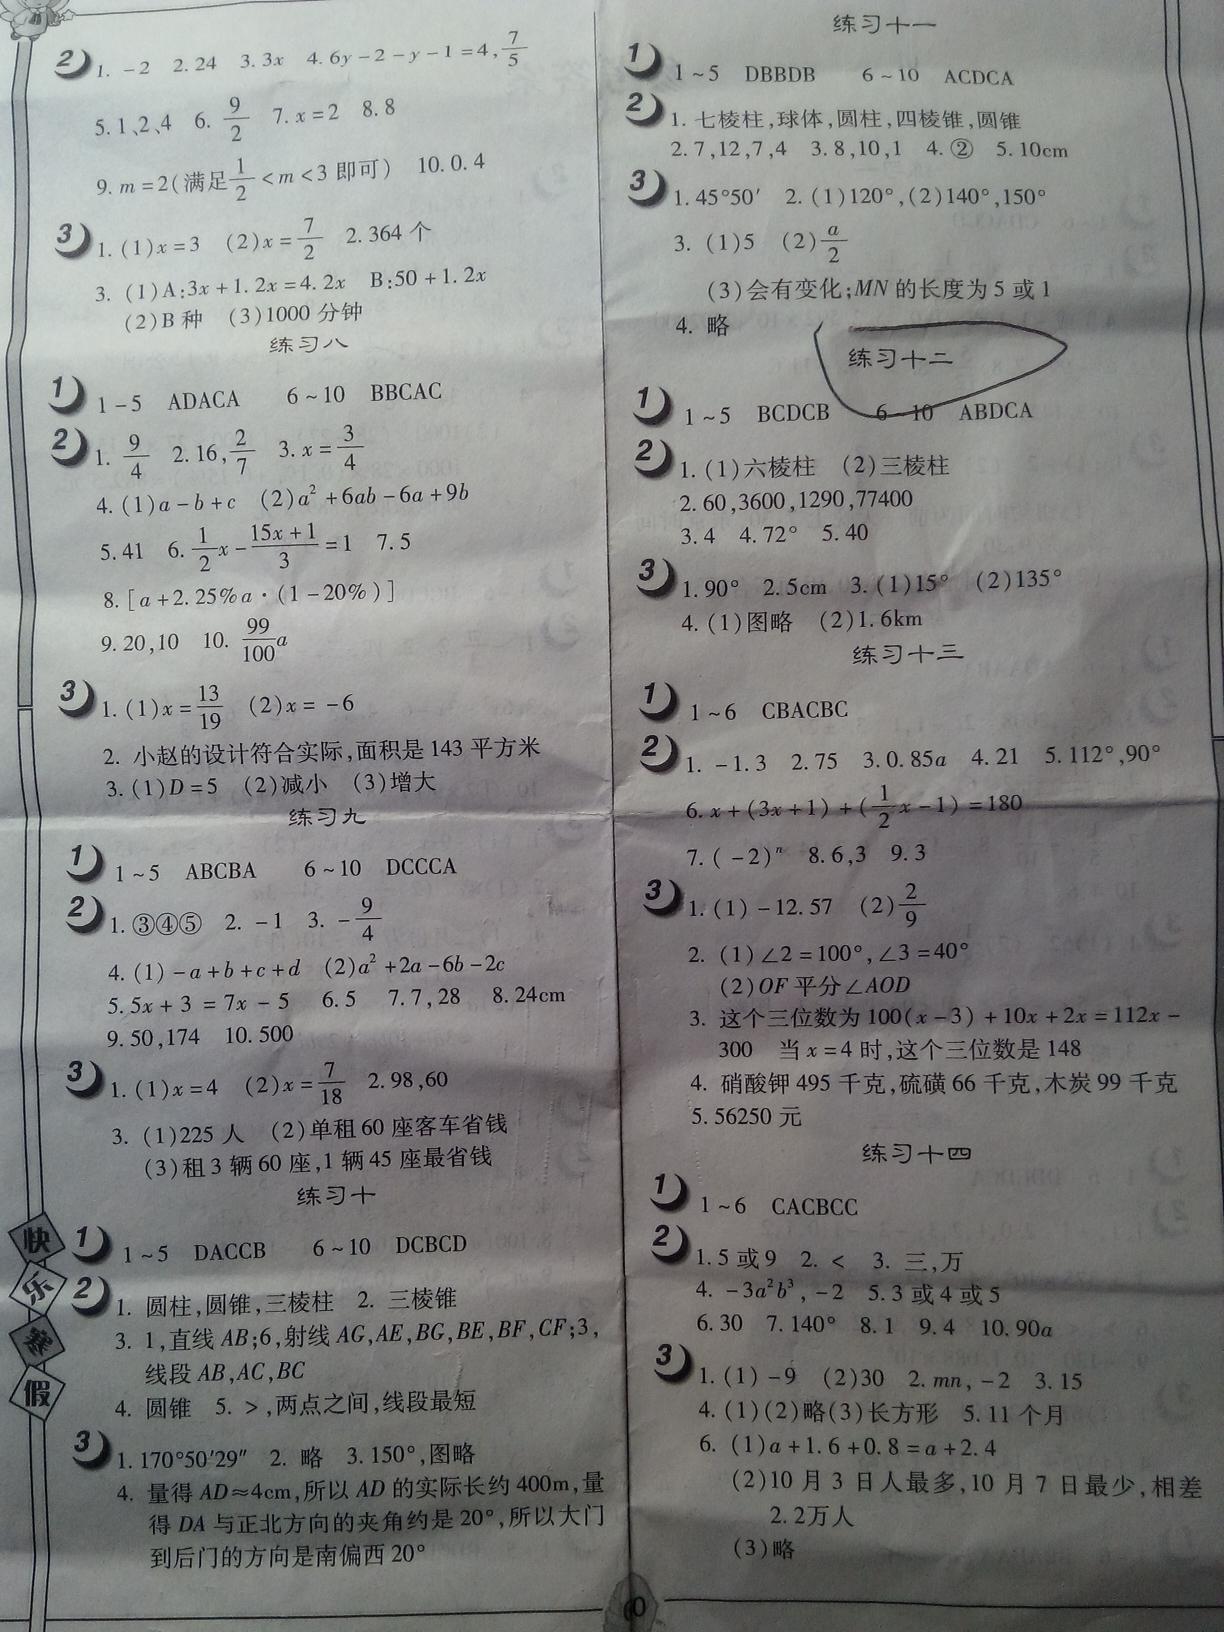 2 1. -2 2. 24 3. 3x 4. 6y-2-y-1=4, 7/5
5. 1、2、4 6. 9/2 7. x=2 8. 8
9. m=2(满足1/2<m<3即可) 10. 0.4
3 1. (1)x=3 (2)x=7/2 2. 364个
3. (1)A:3x+1.2x=4.2x B:50+1.2x
(2)B种 (3)1000分钟
练习八
1 1-5 ADACA 6~10 BBCAC
2 1. 9/4 2. 16, 2/7 3. x=3/4
4. (1)a-b+c (2)a²+6ab-6a+9b
5. 41 6. 1/2x-(15x+1)/3=1 7. 5
8. [a+2.25%a·(1-20%)]
9. 20,10 10. 99/100a
3 1. (1)x=13/19 (2)x=-6
2. 小赵的设计符合实际,面积是143平方米
3. (1)D=5 (2)减小 (3)增大
练习九
1 1~5 ABCBA 6~10 DCCCA
2 1. ③④⑤ 2. -1 3. -9/4
4. (1)-a+b+c+d (2)a²+2a-6b-2c
5. 5x+3=7x-5 6. 5 7. 7,28 8. 24cm
9. 50,174 10. 500
3 1. (1)x=4 (2)x=7/18 2. 98,60
3. (1)225人 (2)单租60座客车省钱
(3)租3辆60座,1辆45座最省钱
练习十
1 1~5 DACCB 6~10 DCBCD
2 1. 圆柱,圆锥,三棱柱 2. 三棱锥
3. 1,直线AB;6,射线AG,AE,BG,BE,BF,CF;3,
线段AB,AC,BC
4. 圆锥 5. >,两点之间,线段最短
3 1. 170°50′29″ 2. 略 3. 150°,图略
4. 量得AD≈4cm,所以AD的实际长约400m,量
得DA与正北方向的夹角约是20°,所以大门
到后门的方向是南偏西20°
快
乐
假
练习十一
1 1~5 DBBDB 6~10 ACDCA
2 1. 七棱柱,球体,圆柱,四棱锥,圆锥
2. 7,12,7,4 3. 8,10,1 4. ② 5. 10cm
3 1. 45°50′ 2. (1)120°,(2)140°,150°
3. (1)5 (2)a/2
(3)会有变化;MN的长度为5或1
4. 略
练习十二
1 1~5 BCDCB 6~10 ABDCA
2 1. (1)六棱柱 (2)三棱柱
2. 60,3600,1290,77400
3. 4 4. 72° 5. 40
3 1. 90° 2. 5cm 3. (1)15° (2)135°
4. (1)图略 (2)1.6km
练习十三
1 1~6 CBACBC
2 1. -1.3 2. 75 3. 0.85a 4. 21 5. 112°,90°
6. x+(3x+1)+(1/2x-1)=180
7. (-2)ⁿ 8. 6,3 9. 3
3 1. (1)-12.57 (2)2/9
2. (1)∠2=100°,∠3=40°
(2)OF平分∠AOD
3. 这个三位数为100(x-3)+10x+2x=112x-
300 当x=4时,这个三位数是148
4. 硝酸钾495千克,硫磺66千克,木炭99千克
5. 56250元
练习十四
1 1~6 CACBCC
2 1. 5或9 2. < 3. 三,万
4. -3a²b³,-2 5. 3或4或5
6. 30 7. 140° 8. 1 9. 4 10. 90a
3 1. (1)-9 (2)30 2. mn,-2 3. 15
4. (1)(2)略(3)长方形 5. 11个月
6. (1)a+1.6+0.8=a+2.4
(2)10月3日人最多,10月7日最少,相差
2.2万人
(3)略